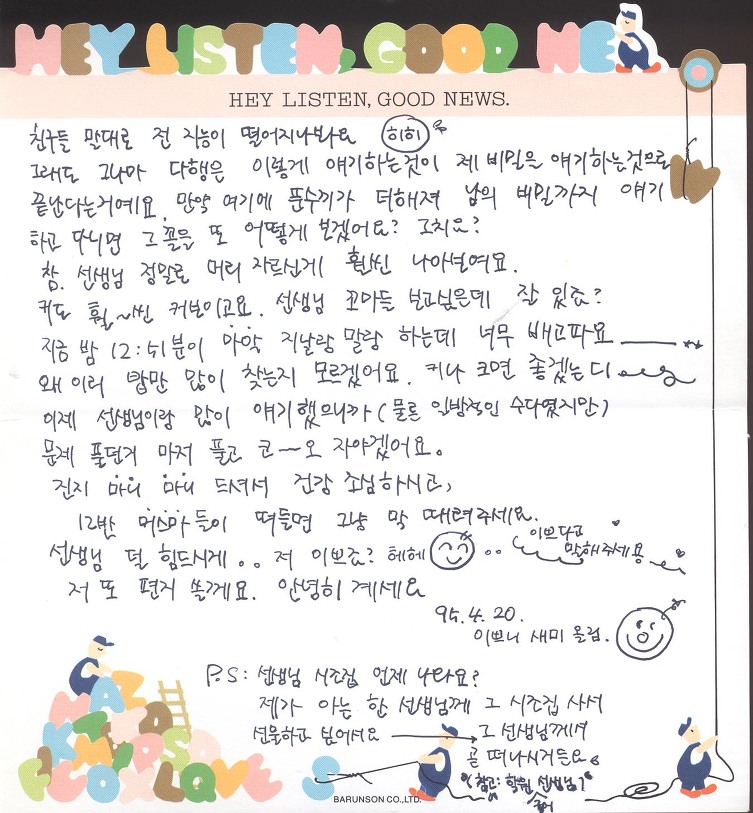 HEY LISTEN, GOOD NE
HEY LISTEN, GOOD NEWS.
친구들 말대로 전 지능이 떨어지나봐요 히히
그래도 그나마 다행은 이렇게 얘기하는것이 제 비밀을 얘기하는것으로
끝난다는거예요. 만약 여기에 푼수끼가 더해져 남의 비밀까지 얘기
하고 다니면 그 꼴을 또 어떻게 보겠어요? 그치요?
참. 선생님 정말로 머리 자르신게 훨씬 나아보여요.
키도 훨~씬 커보이고요. 선생님 꼬마들 보고싶은데 잘 있죠?
지금 밤 12:51분이 마악 지날랑 말랑 하는데 너무 배고파요
왜 이리 밥만 많이 찾는지 모르겠어요. 키나 크면 좋겠는디
이제 선생님이랑 많이 얘기했으니까 (물론 일방적인 수다였지만)
문제 풀던거 마저 풀고 코~오 자야겠어요.
진지 마니 마니 드셔서 건강 조심하시고,
12반 머스마들이 떠들면 그냥 막 때려주세요.
선생님 덜 힘드시게.. 저 이쁘죠? 헤헤 .. 이쁘다고
말해주세용
저 또 편지 쓸께요. 안녕히 계세요
95. 4. 20.
이쁘니 새미 올림.
P.S: 선생님 시조집 언제 나와요?
제가 아는 한 선생님께 그 시조집 사서
선물하고 싶어서요 → 그 선생님께서
곧 떠나시거든요.
(참고: 학원 선생님!)
국어
BARUNSON CO.,LTD.